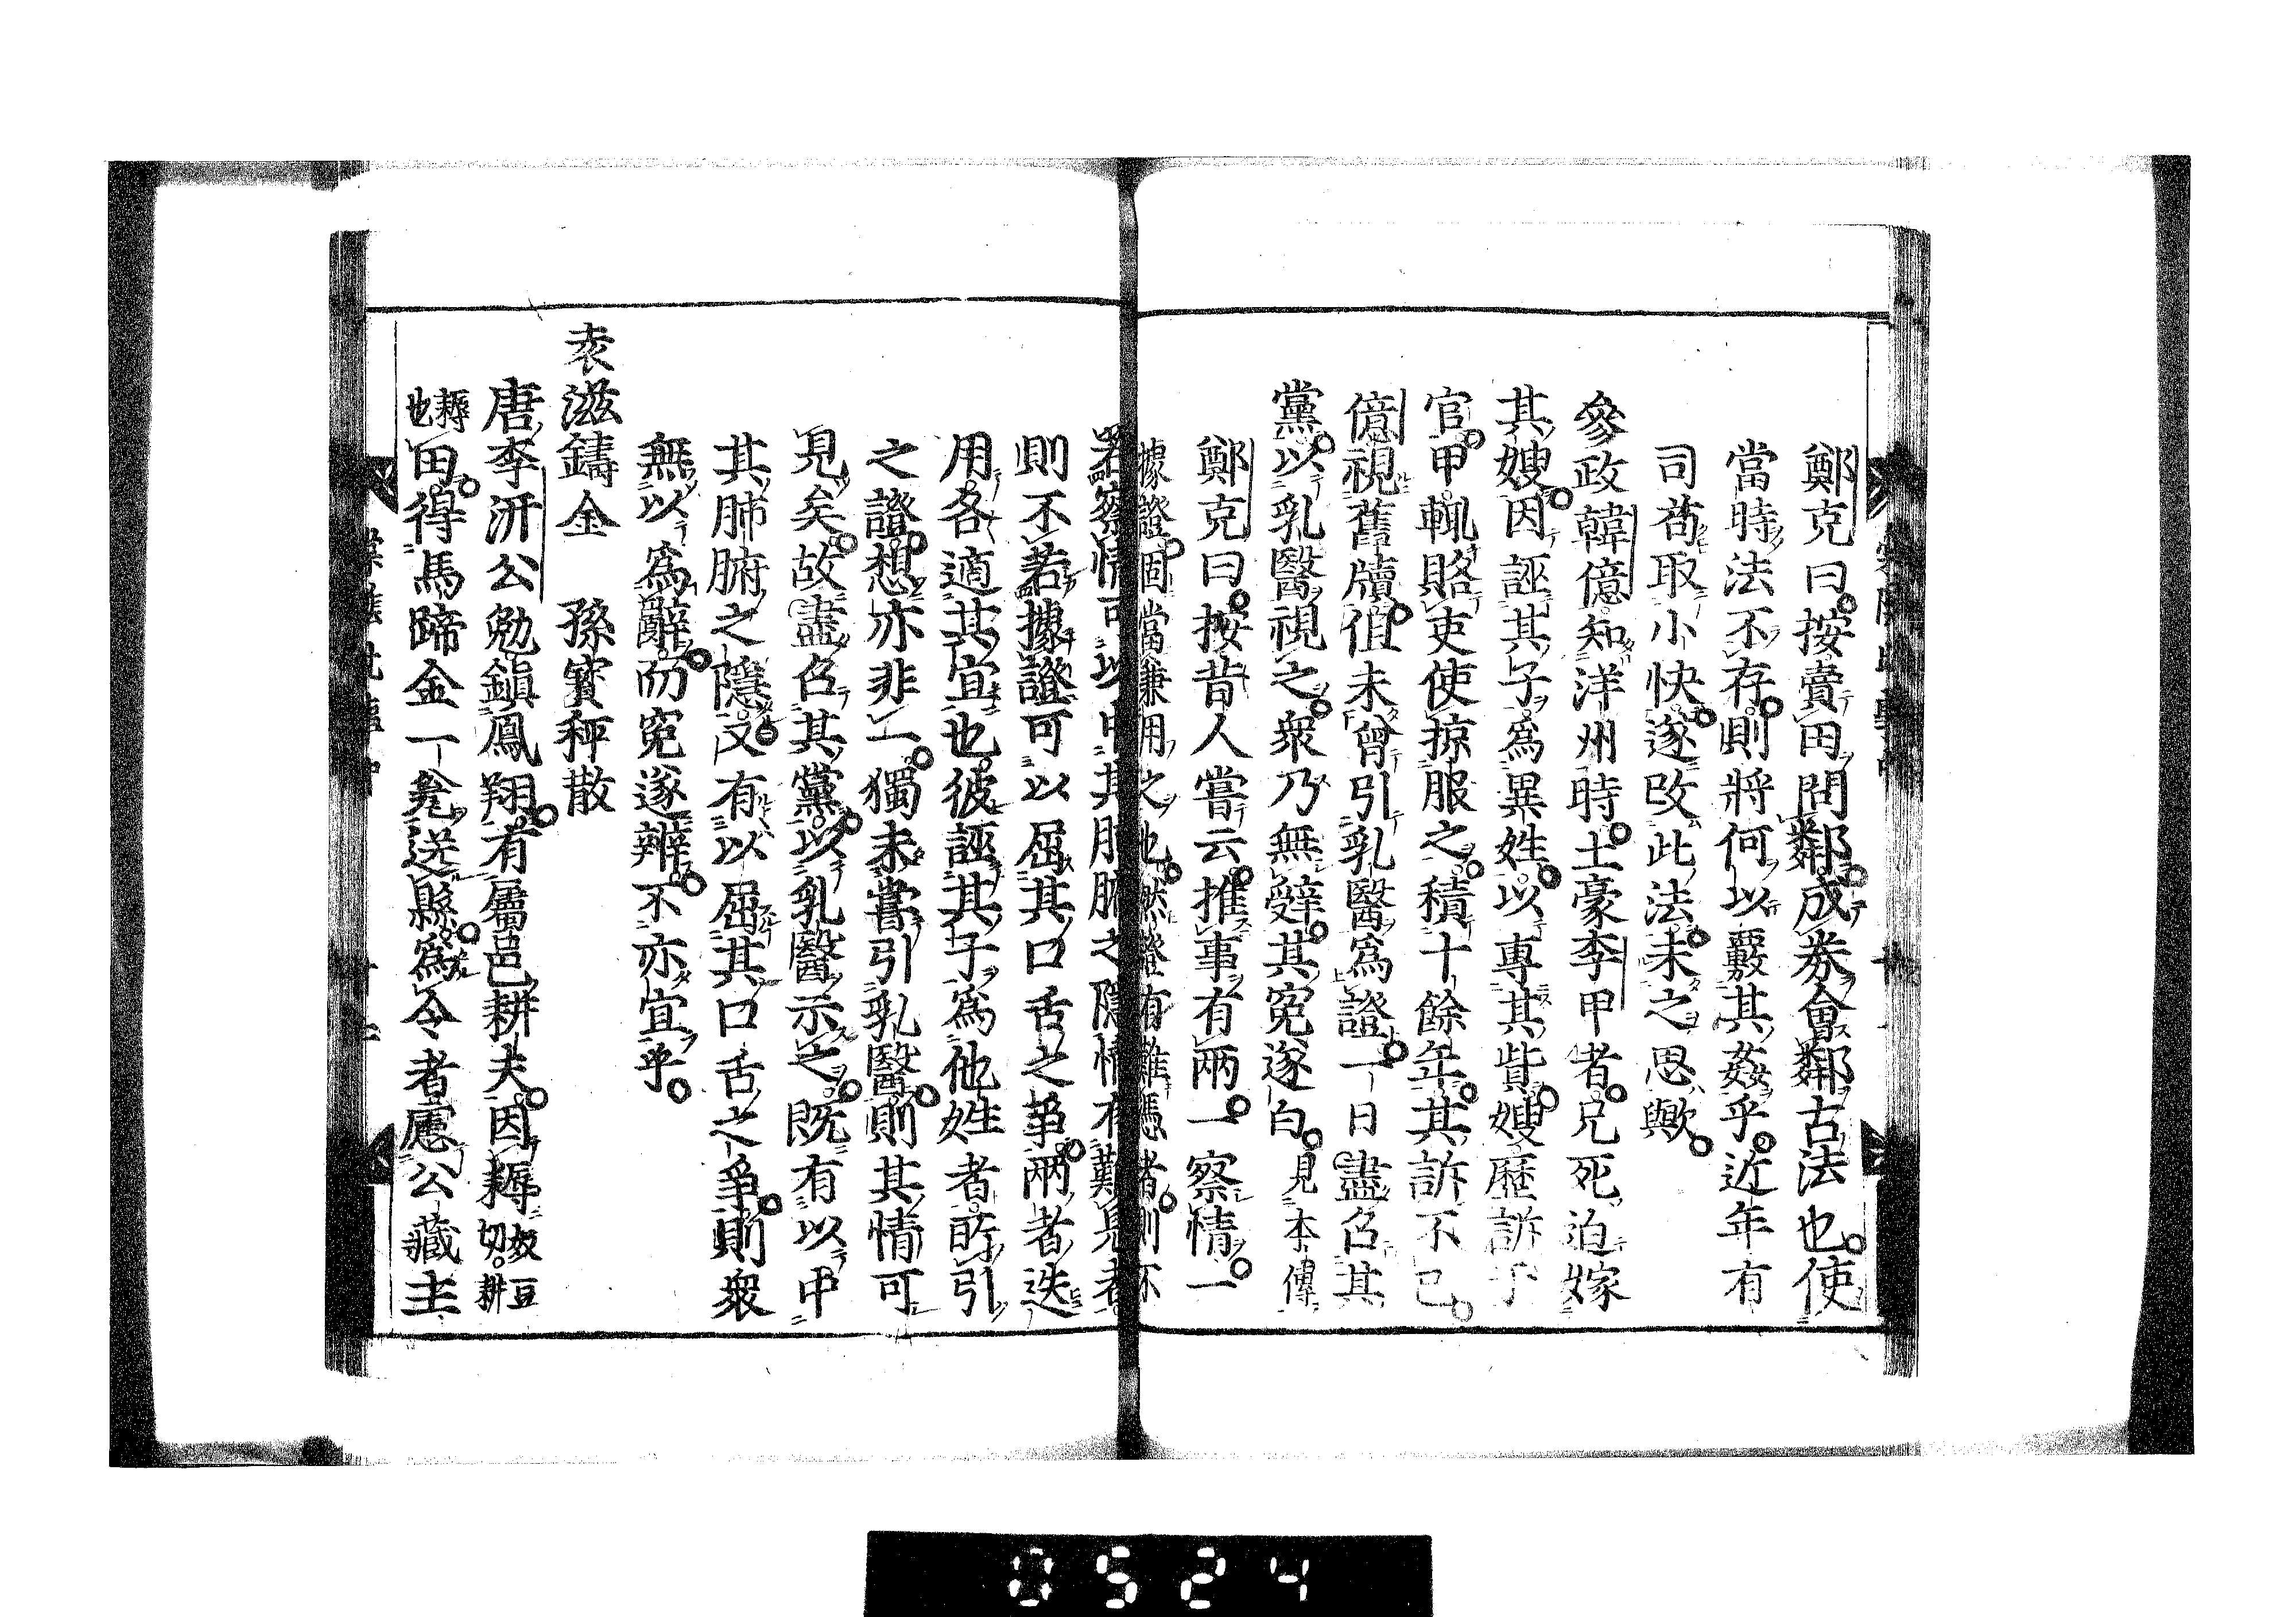 鄭克曰按賣田問鄰成券會鄰古法也使
當時法不存則將何以覈其姦乎近年有
司苟取小快遂改此法未之思歟
參政韓億知洋州時土豪李甲者兄死迫嫁
其嫂因誣其子爲異姓以專其貲嫂歷訴于
官甲輒賂吏使掠服之積十餘年其訴不已
億視舊牘但未曾引乳醫爲證一日盡召其
黨以乳醫視之衆乃無辭其寃遂白見本傳
鄭克曰按昔人嘗云推事有兩一察情一
據證固當兼用之也然證有難憑者則不
若察情可以中其肺腑之隱情有難見者
則不若據證可以屈其口舌之爭兩者迭
用各適其宜也彼誣其子爲他姓者所引
之證想亦非一獨未嘗引乳醫則其情可
見矣故盡召其黨以乳醫示之既有以中
其肺腑之隱又有以屈其口舌之爭則衆
無以爲辭而寃遂辨不亦宜乎
袁滋鑄金 孫寶秤散
唐李汧公勉鎮鳳翔有屬邑耕夫因耨奴豆切耕
耨也田得馬蹄金一瓮送縣爲令者慮公藏主
0524